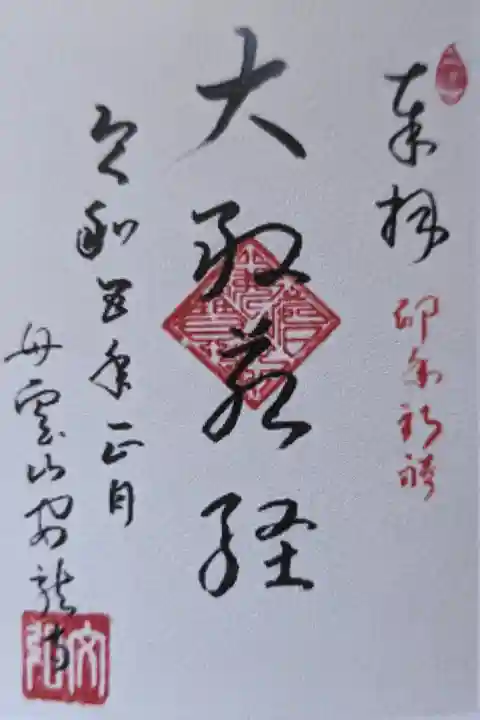 奉拝
卯年
大般若経
令和五年正月
雲山安龍寺